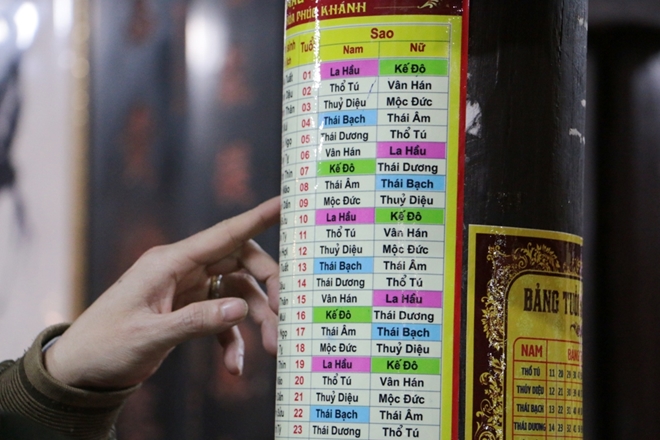 HÒA PHÚC KHÁNH
Tuổi Sao
Nam Nữ
01 La Hầu Kế Đô
02 Thổ Tú Vân Hán
03 Thuỷ Diệu Mộc Đức
04 Thái Bạch Thái Âm
05 Thái Dương Thổ Tú
06 Vân Hán La Hầu
07 Kế Đô Thái Dương
08 Thái Âm Thái Bạch
09 Mộc Đức Thuỷ Diệu
10 La Hầu Kế Đô
11 Thổ Tú Vân Hán
12 Thuỷ Diệu Mộc Đức
13 Thái Bạch Thái Âm
14 Thái Dương Thổ Tú
15 Vân Hán La Hầu
16 Kế Đô Thái Dương
17 Thái Âm Thái Bạch
18 Mộc Đức Thuỷ Diệu
19 La Hầu Kế Đô
20 Thổ Tú Vân Hán
21 Thuỷ Diệu Mộc Đức
22 Thái Bạch Thái Âm
23 Thái Dương Thổ Tú
BẢNG TUỔI
NAM BẢNG
THỔ TÚ 11
THỦY DIỆU 12
THÁI BẠCH 13
THÁI DƯƠNG 14